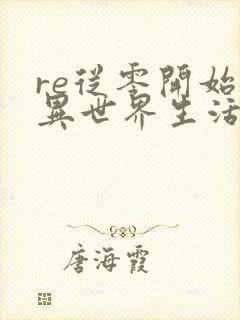 re從零開始
異世界生活
唐海霞